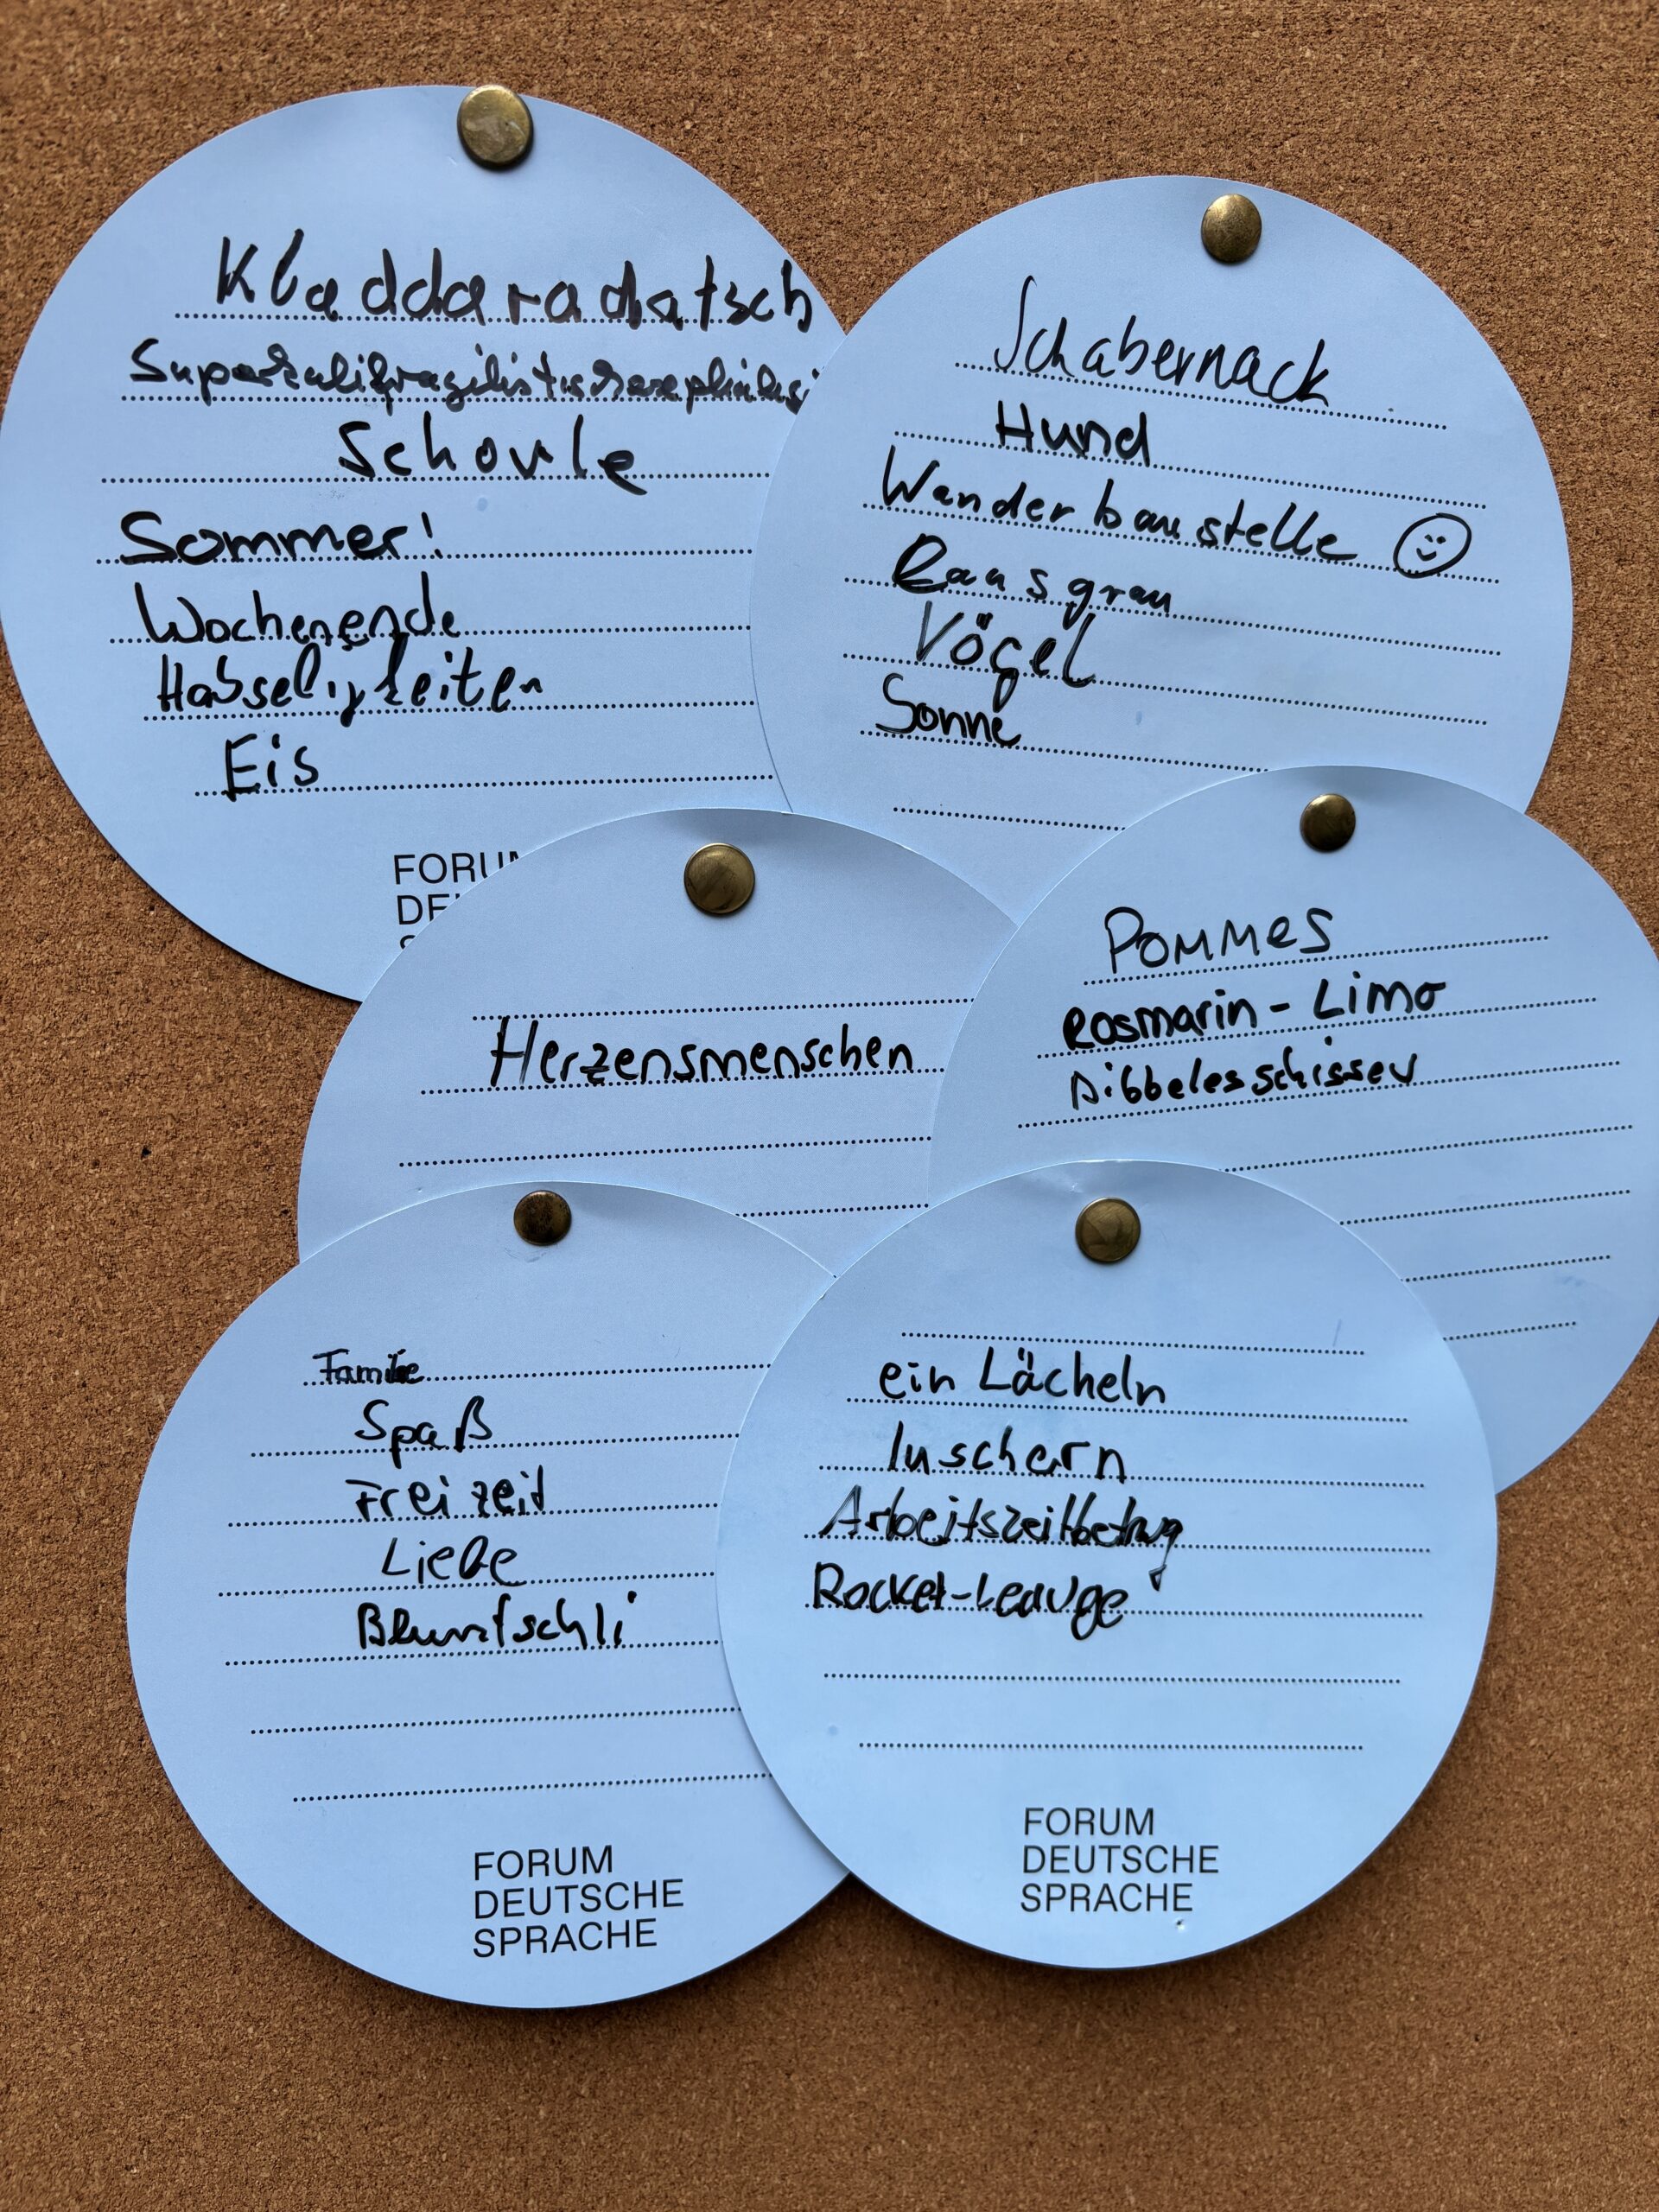 Kladdaradatsch
Schorle
Sommer!
Wochenende
Habseligkeiten
Eis
FORUM
Schabernack
Hund
Wanderbaustelle
Vögel
Sonne
Herzensmenschen
Pommes
Rosmarin-Limo
Dibbelesschisser
Familie
Spaß
Freizeit
Liebe
Bluntschli
FORUM
DEUTSCHE
SPRACHE
ein Lächeln
luschern
Arbeitszeitbetrug
Rocket-Leauge
FORUM
DEUTSCHE
SPRACHE